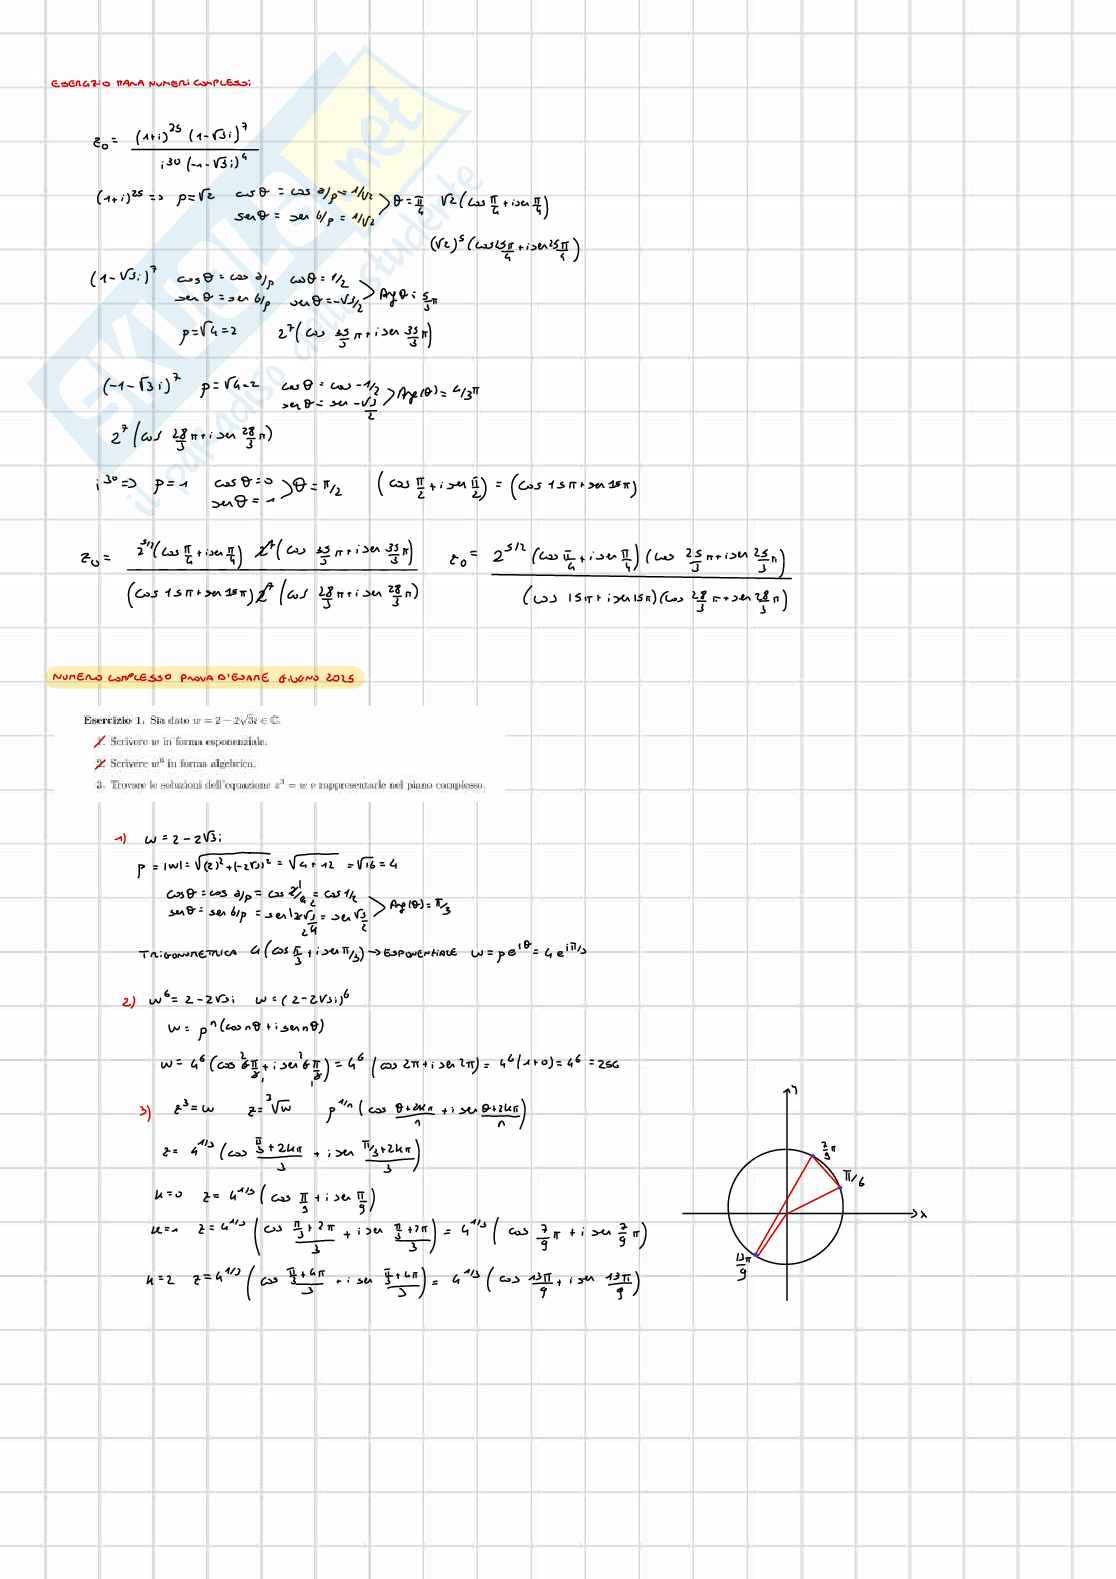 ESERCIZIO TIARA NUMERI COMPLESSI
z₀ = (1+i)^25 (1-√3i)^7 / i^30 (-1-√3i)^4
(1+i)^25 => ρ=√2 cosθ = cos a/ρ = 1/√2 senθ = sen b/ρ = 1/√2 > θ = π/4 √2(cos π/4 + i sen π/4)
(√2)^5 (cos 25π/4 + i sen 25π/4)
(1-√3i)^7 cosθ = cos a/ρ cosθ = 1/2 senθ = sen b/ρ senθ = -√3/2 > Arg θ: 5/3 π
ρ=√4=2 2^7(cos 35/3 π + i sen 35/3 π)
(-1-√3i)^7 ρ=√4=2 cosθ = cos -1/2 senθ = sen -√3/2 > Arg(θ) = 4/3π
2^7 (cos 28/3 π + i sen 28/3 π)
i^30 => ρ=1 cosθ=0 senθ=1 > θ = π/2 (cos π/2 + i sen π/2) = (cos 15π + sen 15π)
z₀ = 2^5/2 (cos π/4 + i sen π/4) 2^7 (cos 35/3 π + i sen 35/3 π) / (cos 15π + sen 15π) 2^7 (cos 28/3 π + i sen 28/3 π) z₀ = 2^5/2 (cos π/4 + i sen π/4)(cos 25/3 π + i sen 25/3 π) / (cos 15π + i sen 15π)(cos 28/3 π + sen 28/3 π)
NUMERO COMPLESSO PROVA D'ESAME GIUGNO 2025
Esercizio 1. Sia dato w = 2 − 2√3i ∈ ℂ.
1. Scrivere w in forma esponenziale.
2. Scrivere w^6 in forma algebrica.
3. Trovare le soluzioni dell'equazione z^3 = w e rappresentarle nel piano complesso.
1) w = 2-2√3i
ρ = |w| = √(2)²+(-2√3)² = √4+12 = √16 = 4
cosθ = cos a/ρ = cos 2/4 = cos 1/2
senθ = sen b/ρ = sen 2√3/4 = sen √3/2 > Arg(θ) = π/3
TRIGONOMETRICA 4(cos π/3 + i sen π/3) → ESPONENZIALE w = ρe^iθ = 4e^iπ/3
2) w^6 = 2-2√3i w = (2-2√3i)^6
w = ρ^n (cos nθ + i sen nθ)
w = 4^6 (cos 6π/3 + i sen 6π/3) = 4^6 (cos 2π + i sen 2π) = 4^6 (1+0) = 4^6 = 256
3) z³ = w z = ³√w ρ^1/n (cos θ+2kπ/n + i sen θ+2kπ/n)
z = 4^1/3 (cos π/3+2kπ/3 + i sen π/3+2kπ/3)
k=0 z = 4^1/3 (cos π/9 + i sen π/9)
k=1 z = 4^1/3 (cos π/3+2π/3 + i sen π/3+2π/3) = 4^1/3 (cos 7/9 π + i sen 7/9 π)
k=2 z = 4^1/3 (cos π/3+4π/3 + i sen π/3+4π/3) = 4^1/3 (cos 13π/9 + i sen 13π/9)
y
7/9 π
π/6
x
13π/9
SKUOLA.net
il paradiso dello studente